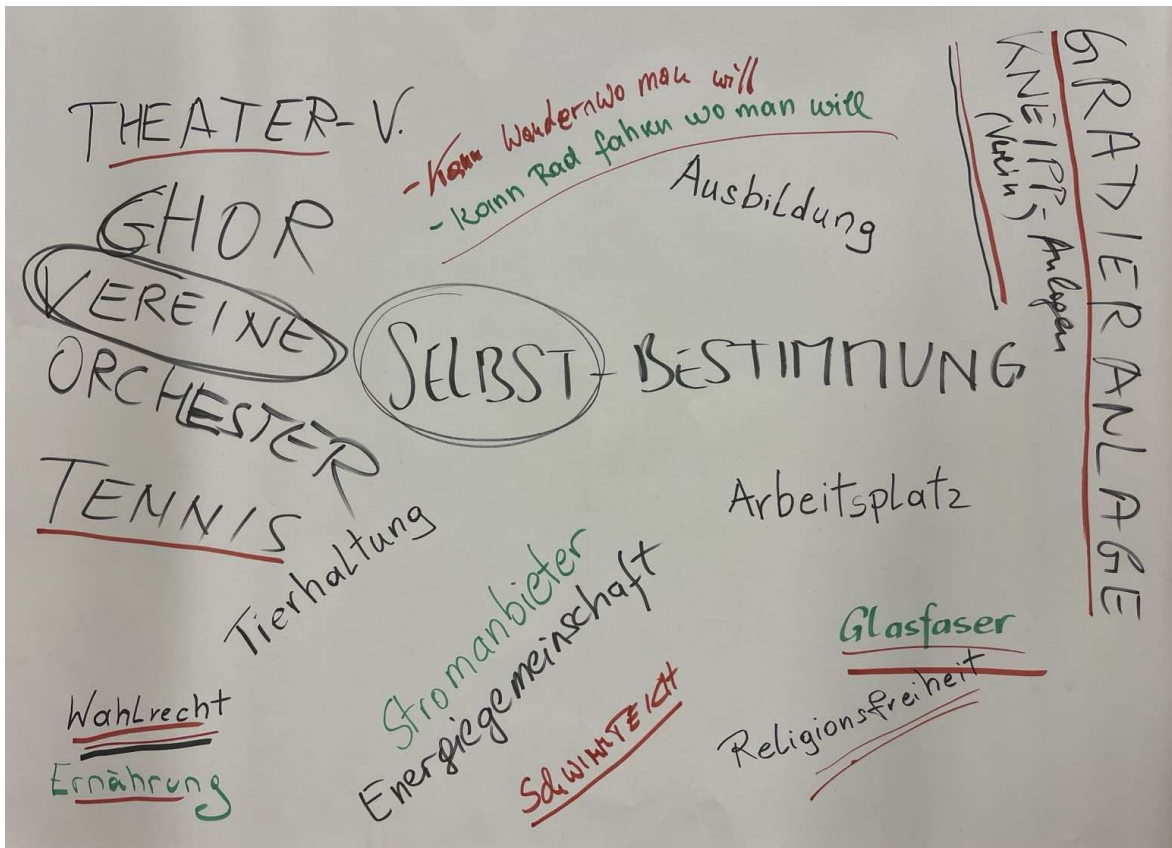 THEATER-V.
CHOR
VEREINE
ORCHESTER
TENNIS
- Kann Wandern wo man will
- Kann Rad fahren wo man will
Ausbildung
SELBST-BESTIMMUNG
GRADIERANLAGE
KNEIPP-Anlagen
(Verein)
Arbeitsplatz
Tierhaltung
Stromanbieter
Energiegemeinschaft
Glasfaser
Religionsfreiheit
SCHWIMMTEICH
Wahlrecht
Ernährung